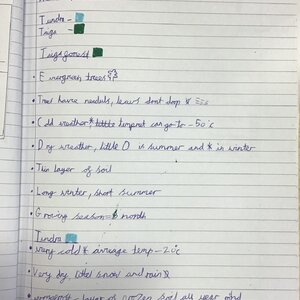 Tundra -
Triga -
Triga forest
• Evergreen trees
• Trees have needels, leavs dont drop
• Cold weather* little temperet can go to -50°c
• Dry weather, little in summer and * in winter
• Thin layer of soil
• Long winter, short summer
• Growing season = 6 month
Tundra
• very cold * avreage temp -20°c
• Very dry littel snow and rain
layer of frozen soil all year